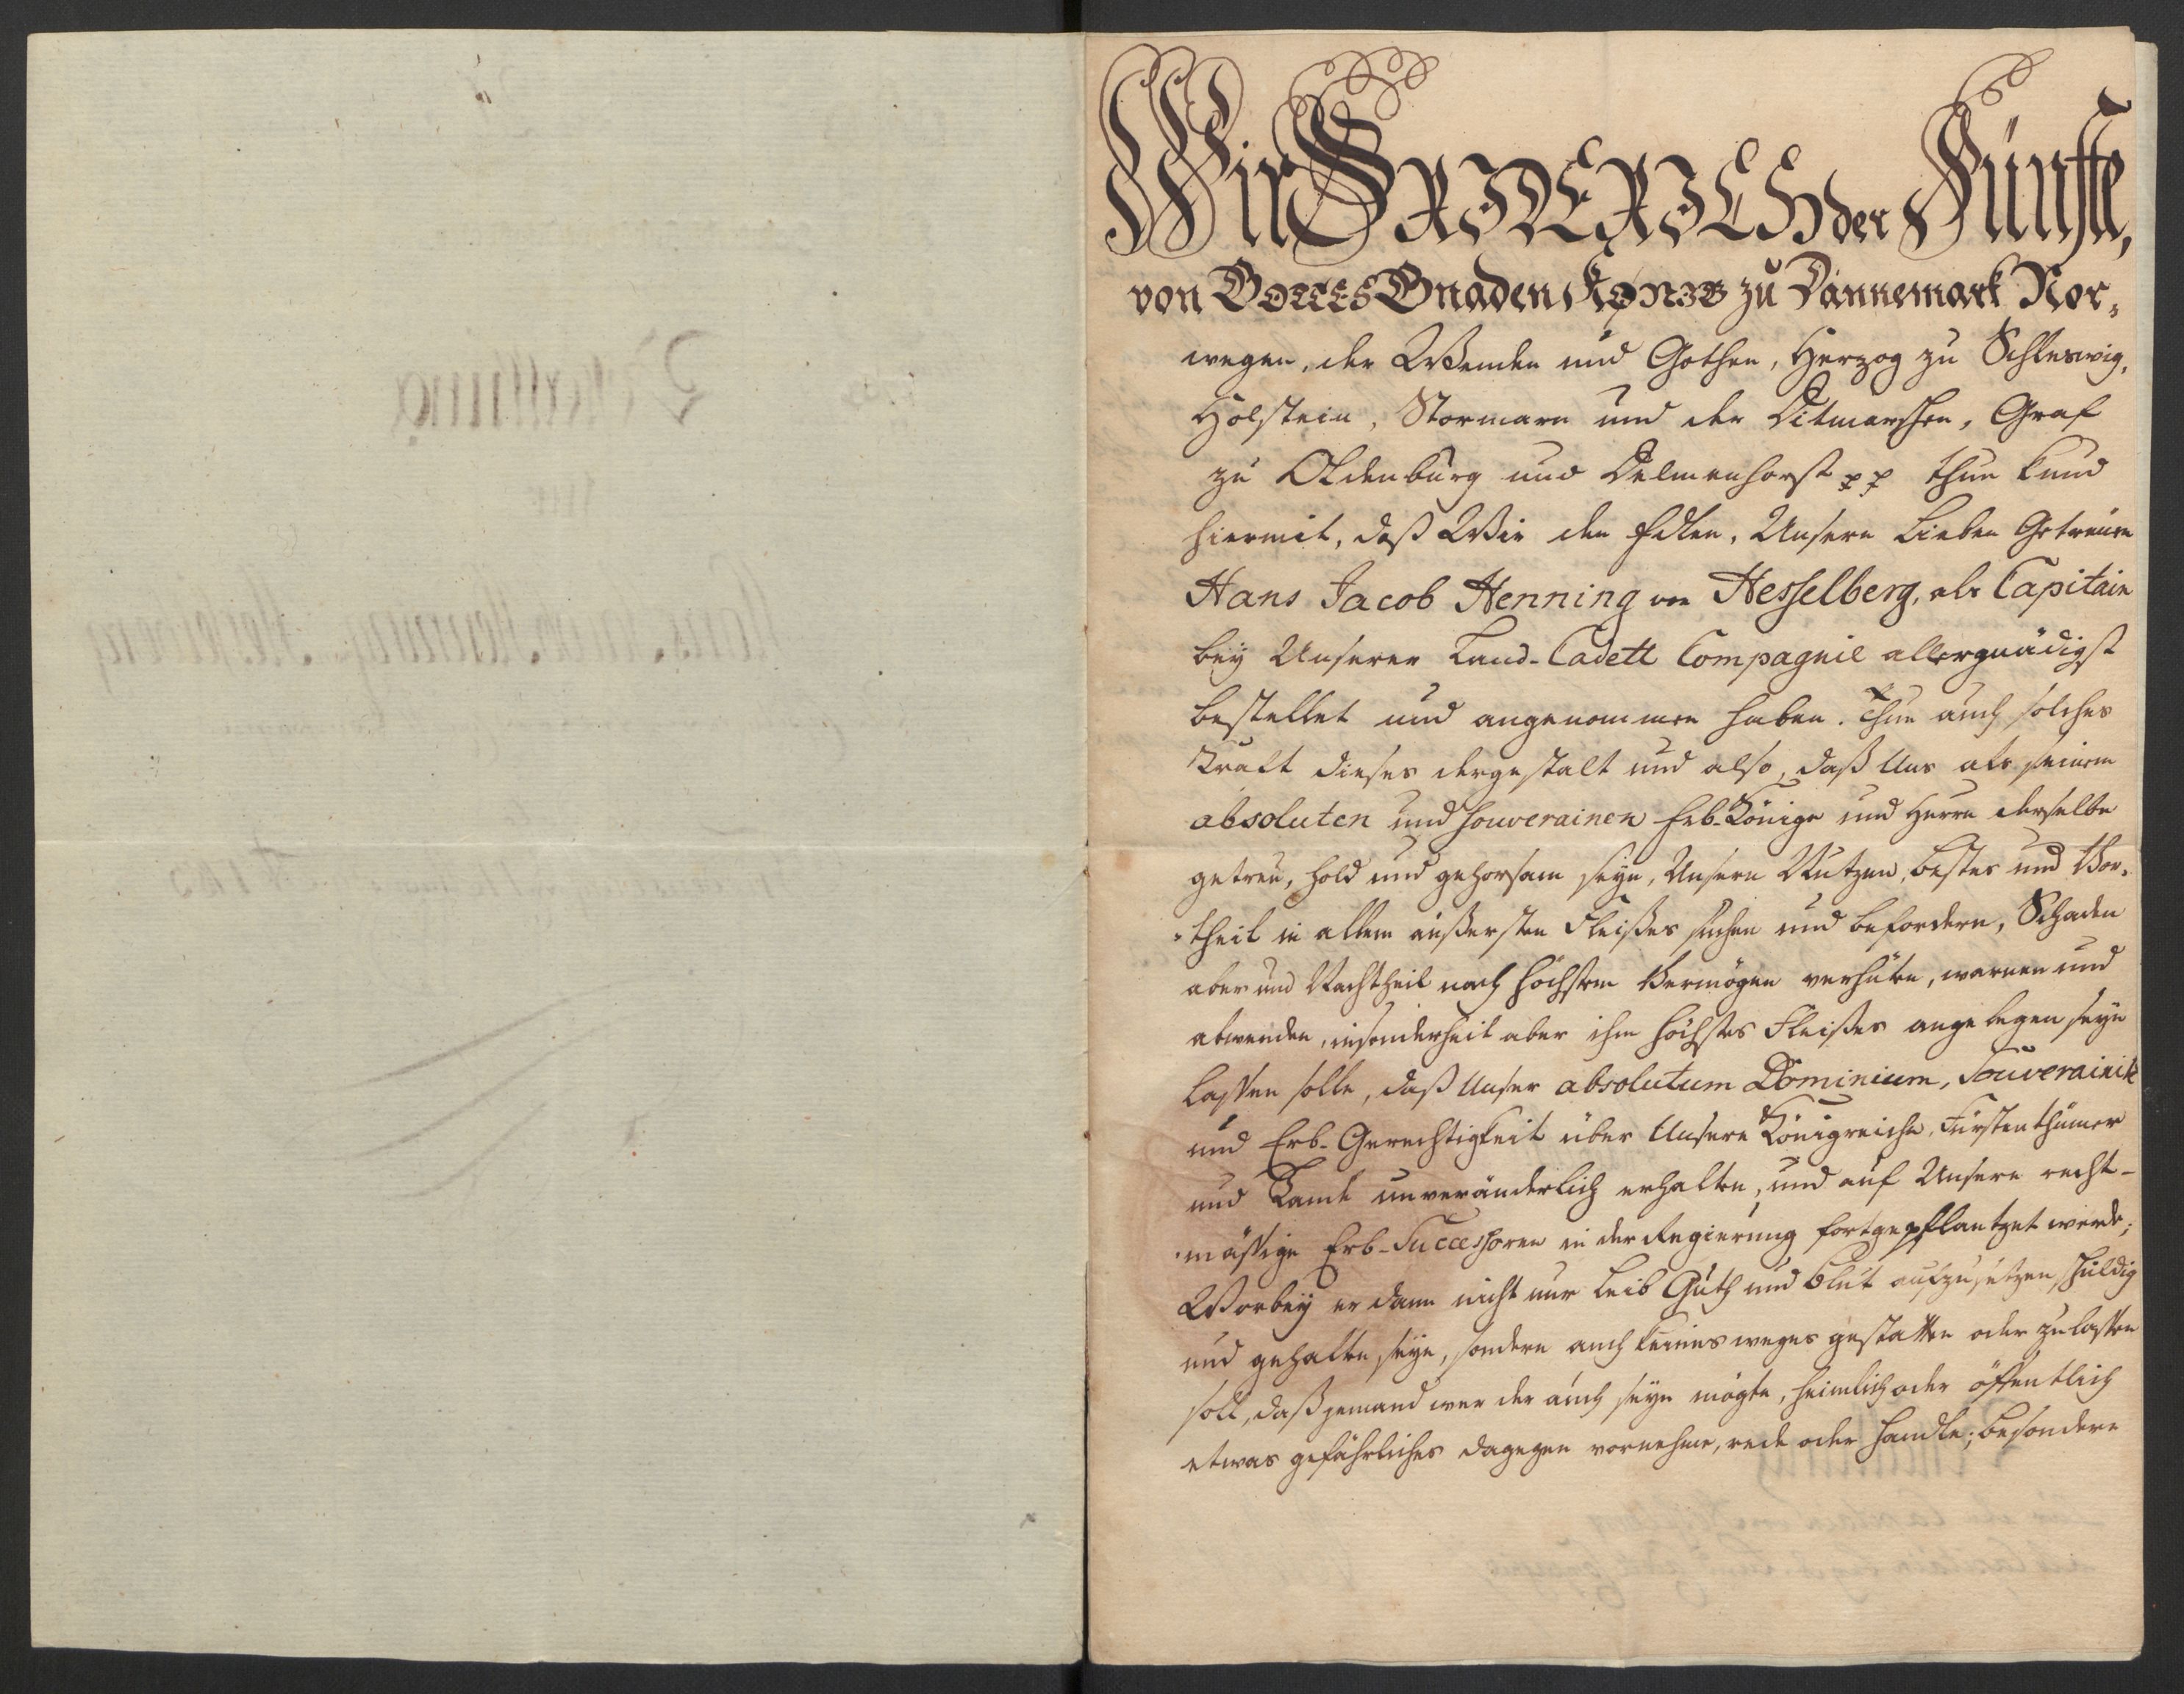 Wir FRIDERICH der Fünffte,
von GOTTES Gnaden KØNIG zu Dännemark Nor-
wegen, der Wenden und Gothen, Hertzog zu Schleswig,
Holstein, Stormarn und der Ditmarschen, Graf
zu Oldenburg und Delmenhorst pp thun kund
hiermit, daß Wir den Edlen, Unsern Lieben Getreuen
Hans Jacob Henning von Hesselberg, als Capitain
bey Unserer Land-Cadett Compagnie allergnädigst
bestellet und angenommen haben. Thun auch solches
Kraft dieses dergestalt und also, daß Uns als seinem
absoluten und souverainen Erb-Könige und Herrn derselbe
getreu, hold und gehorsam seyn, Unsern Nutzen, bestes und Vor-
-theil in allem äußersten Fleißes suchen und befordern, Schaden
aber und Nachtheil nach höchstem Vermögen verhüten, warnen und
abwenden, insonderheit aber ihm höchstes Fleißes angelegen seyn
lassen solle, daß Unser absolutum Dominium, Souverainité
und Erb-Gerechtigkeit über Unsere Königreiche, Fürstenthümer
und Lande unveränderlich erhalten, und auf Unsere recht-
-mässige Erb-Successoren in der Regierung fortgepflantzet werde;
Worbey er dann nicht nur Leib Guth und Blut aufzusetzen schuldig
und gehalten seyn, sondern auch keinesweges gestatten oder zulassen
soll, daß jemand wer der auch seyn mögte, heimlich oder öffentlich
etwas gefährliches dagegen vornehme, rede oder handle; besondern